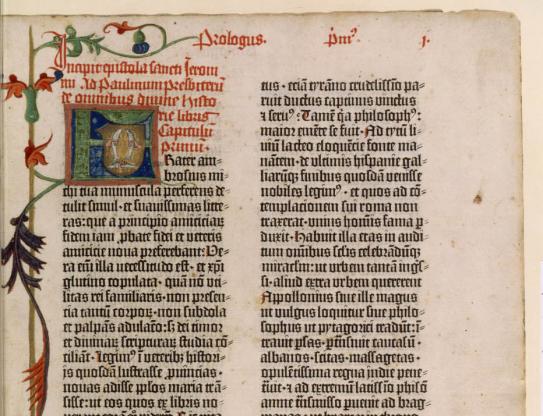 Prologus. pm⁹. 1.
Incipit epistola sancti Ieroni
mi ad Paulinum presbiterum
de omnibus divine histo
rie libris
Capitulū
primum
Frater am-
brosius mi-
chi tua munuscula perferens de-
tulit simul et suavissimas litte-
ras: que a principio amiciciarū
fidem iam p̄bate fidei et veteris
amicicie nova preferebant: Ve-
ra em̄ illa necessitudo est· et xp̄i
glutino copulata· quā nō vti-
litas rei familiaris· non presen-
cia tantū corporū· non subdola
et palpās adulacō: s̄ dei timor
et divinarū scripturarū studia cō-
ciliāt· Legim⁹ ī veterib⁹ histori-
js quosdā lustrasse p̄uincias·
nouas adisse pplos maria trā-
sisse: ut eos quos ex libris no-
tus· eciā tyrāno crudelissīo pa-
ruit ductus captiuus vinctus
⁊ seru⁹: Tamē q̄a philosoph⁹:
maior emēte se fuit· Ad tytū li-
uiū lacteo eloquēcie fonte ma-
nātem· de vltimis hispanie gal-
liarūq; finibus quosdā venisse
nobiles legim⁹· et quos ad cō-
templacionem sui roma non
traxerat· vnius homīs fama p̄-
duxit· Habuit illa etas in audi-
tum omībus seclis celebrādūq;
miraclm: ut vrbem tantā ingſ-
si· aliud extra vrbem quererent
Apollonius siue ille magus
ut vulgus loquitur siue philo-
sophus· ut pytagorici tradūt: ī-
trauit ꝑsas· ꝑtrāsiuit caucasū·
albanos· scitas· massagetas·
opulētissima regna indie pene-
trauit· ⁊ ad extremū latissīo phisō
amne trāsmisso puenit ad brag-